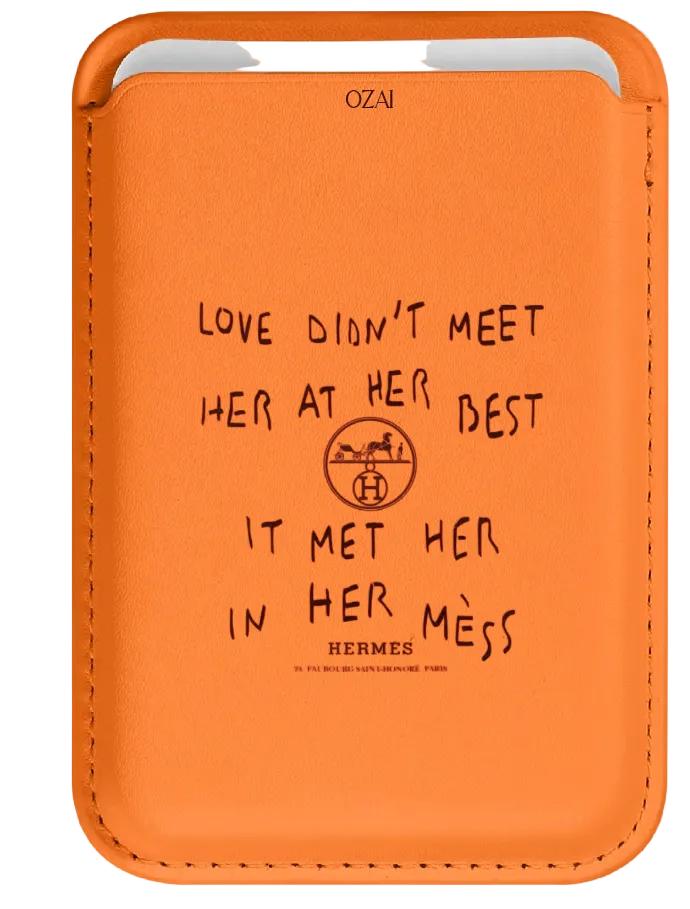 OZAI
LOVE DIDN'T MEET
HER AT HER BEST
H
IT MET HER
IN HER MÈSS
HERMÈS
24 FAUBOURG SAINT-HONORÉ PARIS